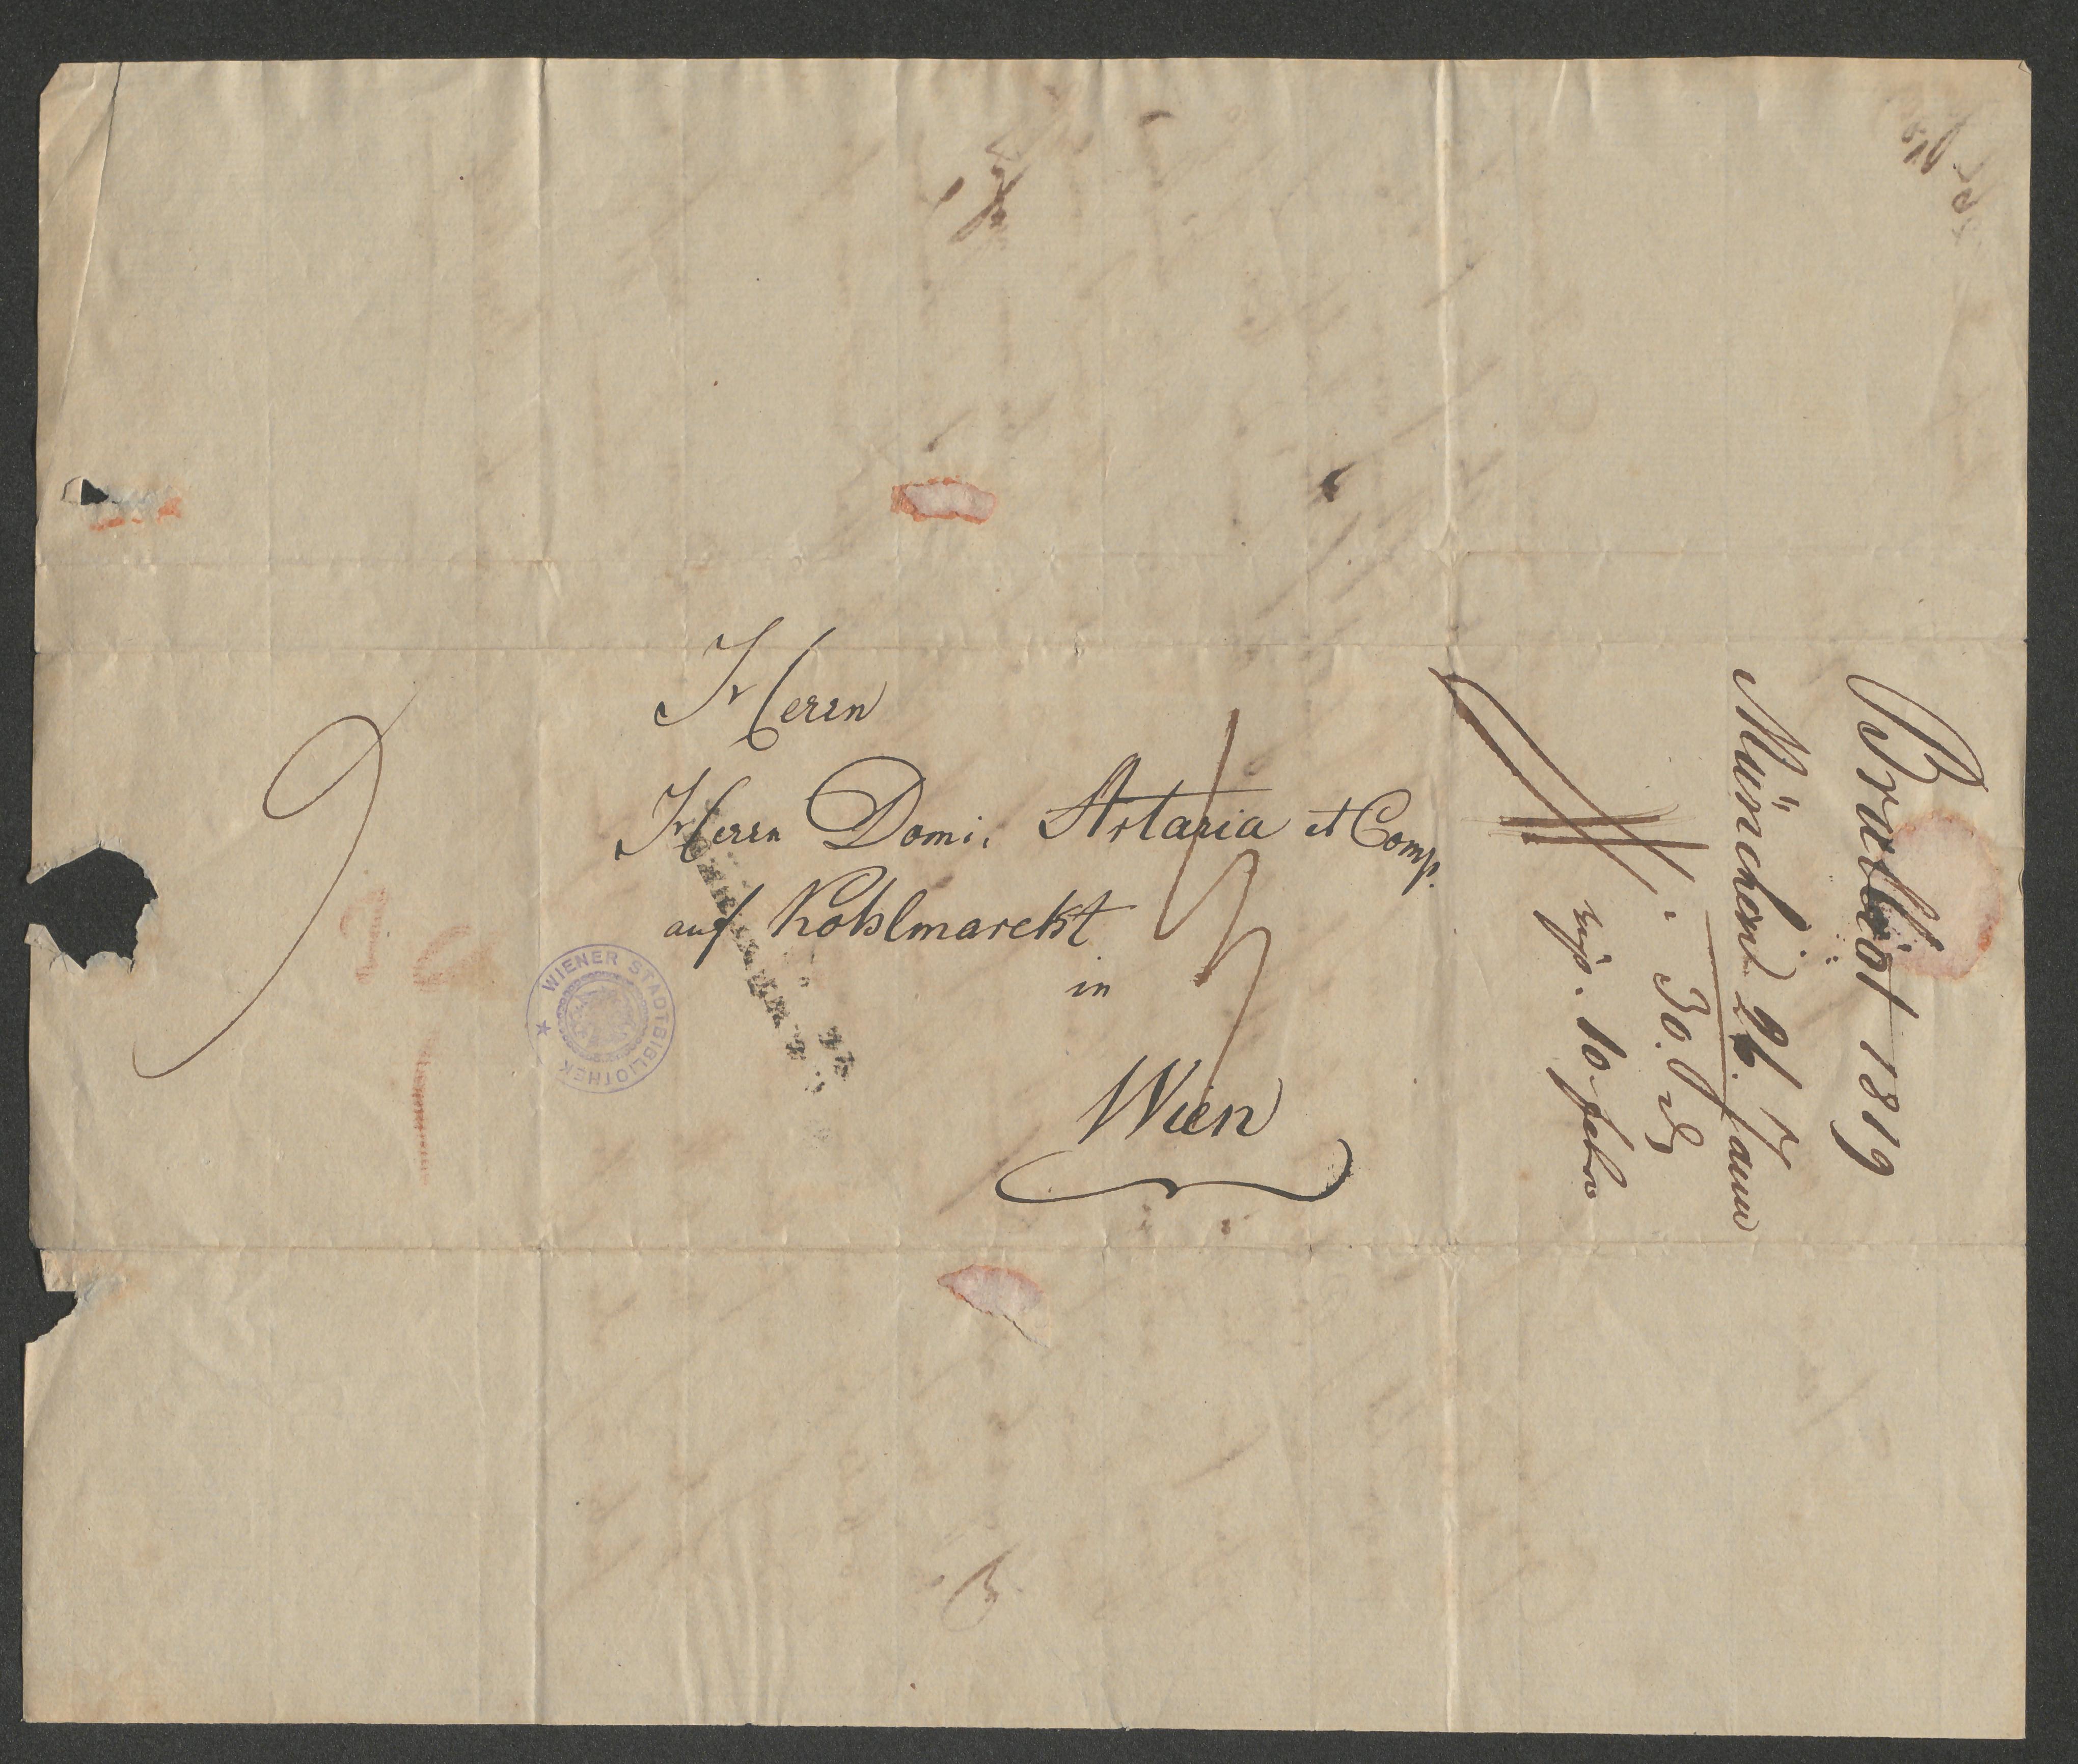 Herrn
Herrn Domi. Artaria et Comp.
auf Kohlmarckt
in
Wien
WIENER STADTBIBLIOTHEK
Brulliot 1819
München 26. Janu
30. d
resp. 10 febr